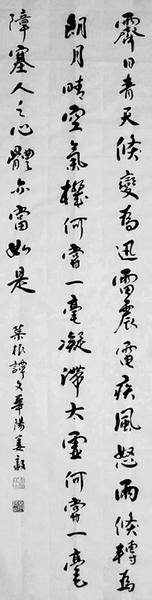 霽日青天倏變為迅雷震電疾風怒雨倏轉為
朗月晴空氣機何嘗一毫凝滯太虛何嘗一毫
障塞人之心體亦當如是
菜根譚文華陽姜毅